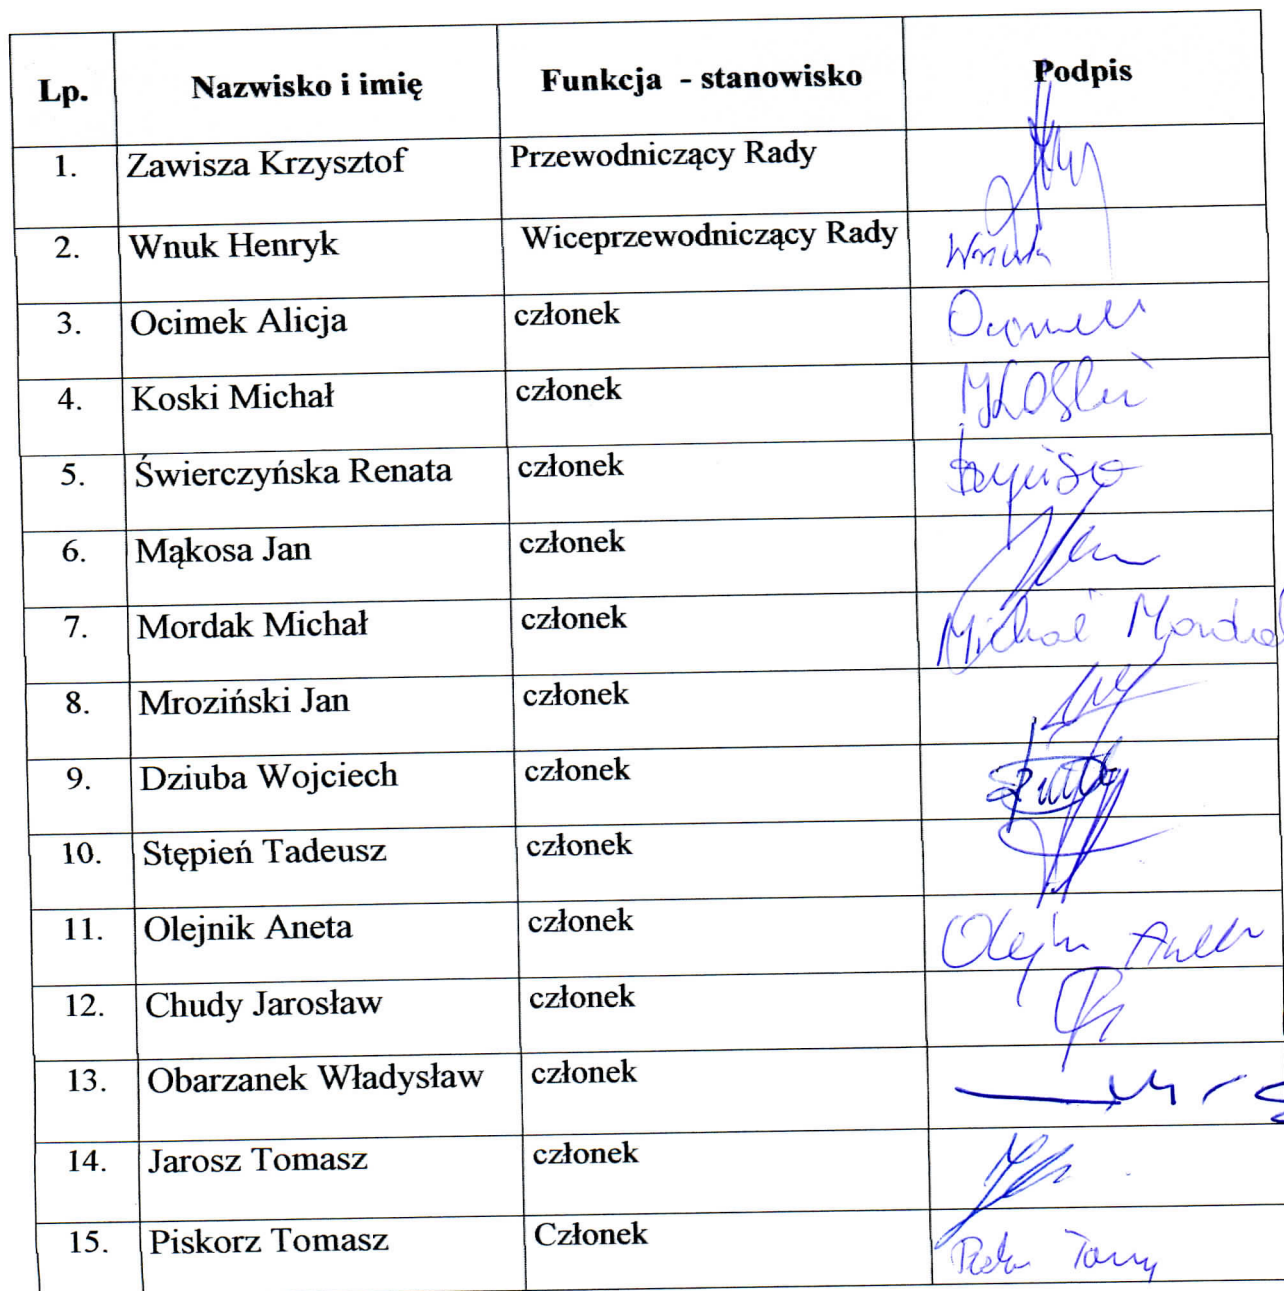 Lp. Nazwisko i imię Funkcja - stanowisko Podpis
1. Zawisza Krzysztof Przewodniczący Rady
2. Wnuk Henryk Wiceprzewodniczący Rady Wnuk
3. Ocimek Alicja członek Ocimek
4. Koski Michał członek MKoski
5. Świerczyńska Renata członek
6. Mąkosa Jan członek
7. Mordak Michał członek Michał Mordak
8. Mroziński Jan członek
9. Dziuba Wojciech członek
10. Stępień Tadeusz członek
11. Olejnik Aneta członek Olejnik Aneta
12. Chudy Jarosław członek
13. Obarzanek Władysław członek
14. Jarosz Tomasz członek
15. Piskorz Tomasz Członek